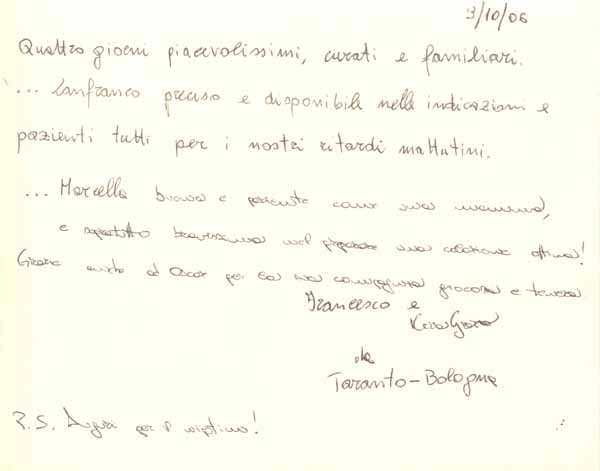 3/10/06
Quattro giorni piacevolissimi, curati e familiari.
... Lanfranco preciso e disponibile nelle indicazioni e
pazienti tutti per i nostri ritardi mattutini.
... Marcella brava e paziente come una mamma,
e soprattutto bravissima nel preparare una colazione ottima!
Grazie anche ad Oscar per la sua compagnia giocosa e tenera
Francesco e
da
Taranto-Bologna
P.S. Auguri per il !